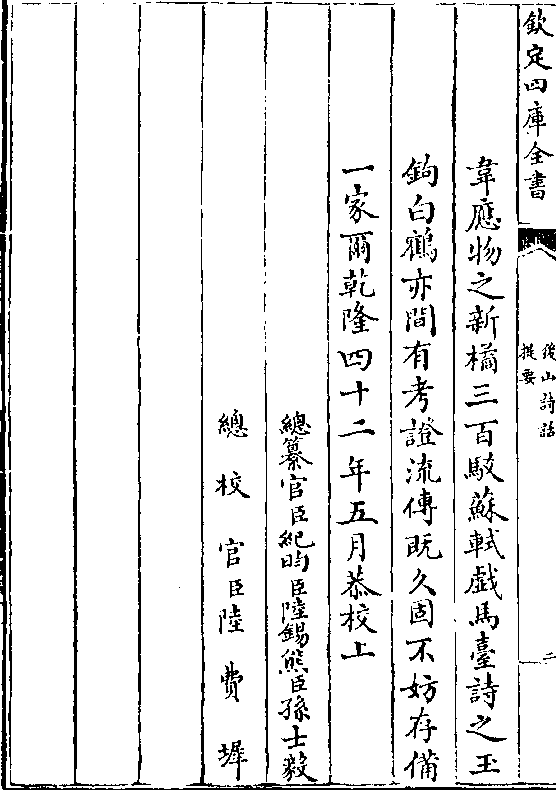 欽定四庫全書
後山詩話
提要
二
韋應物之新橘三百駁蘇軾戲馬臺詩之玉
鉤白鶴亦間有考證流傳既久固不妨存備
一家爾乾隆四十二年五月恭校上
總纂官臣紀昀臣陸錫熊臣孫士毅
總校官臣陸費墀